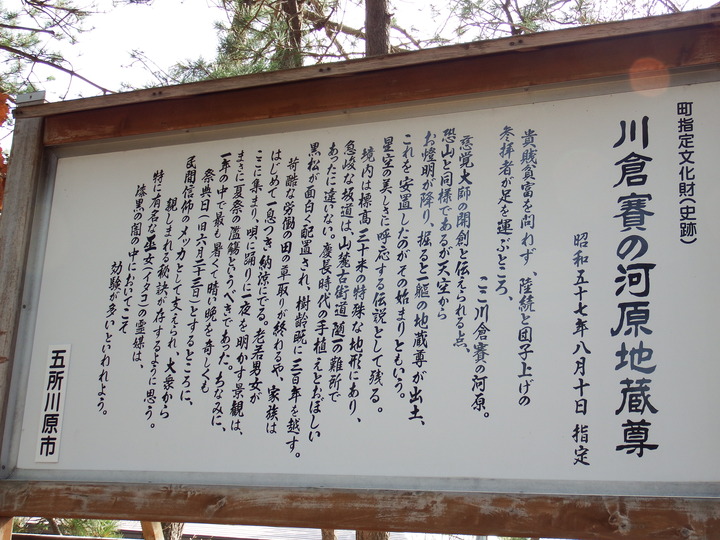 町指定文化財(史跡)
川倉賽の河原地蔵尊
昭和五十七年八月十日 指定
貴賤貧富を問わず、陸続と団子上げの
参拝者が足を運ぶところ、
ここ川倉賽の河原。
慈覚大師の開創と伝えられる点、
恐山と同様であるが天空から
お燈明が降り、掘ると一軀の地蔵尊が出土、
これを安置したのがその始まりともいう。
星空の美しさに呼応する伝説として残る。
境内は標高三十米の特殊な地形にあり、
急峻な坂道は、山麓古街道随一の難所で
あったに違いない。慶長時代の手植えとおぼしい
黒松が面白く配置され、樹齢既に三百年を越す。
苛酷な労働の田の草取りが終わるや、家族は
はじめて一息つき納涼にでる。老若男女が
ここに集まり、唄に踊りに一夜を明かす景観は、
まさに夏祭の濫觴というべきであった。ちなみに、
一年の中で最も暑くて暗い晩を奇しくも
祭典日(旧六月二十三日)とするところに、
民間信仰のメッカとして支えられ、大衆から
親しまれる秘訣が存するように思う。
特に有名な巫女(イタコ)の霊媒は、
漆黒の闇の中においてこそ
効験が多いといわれよう。
五所川原市